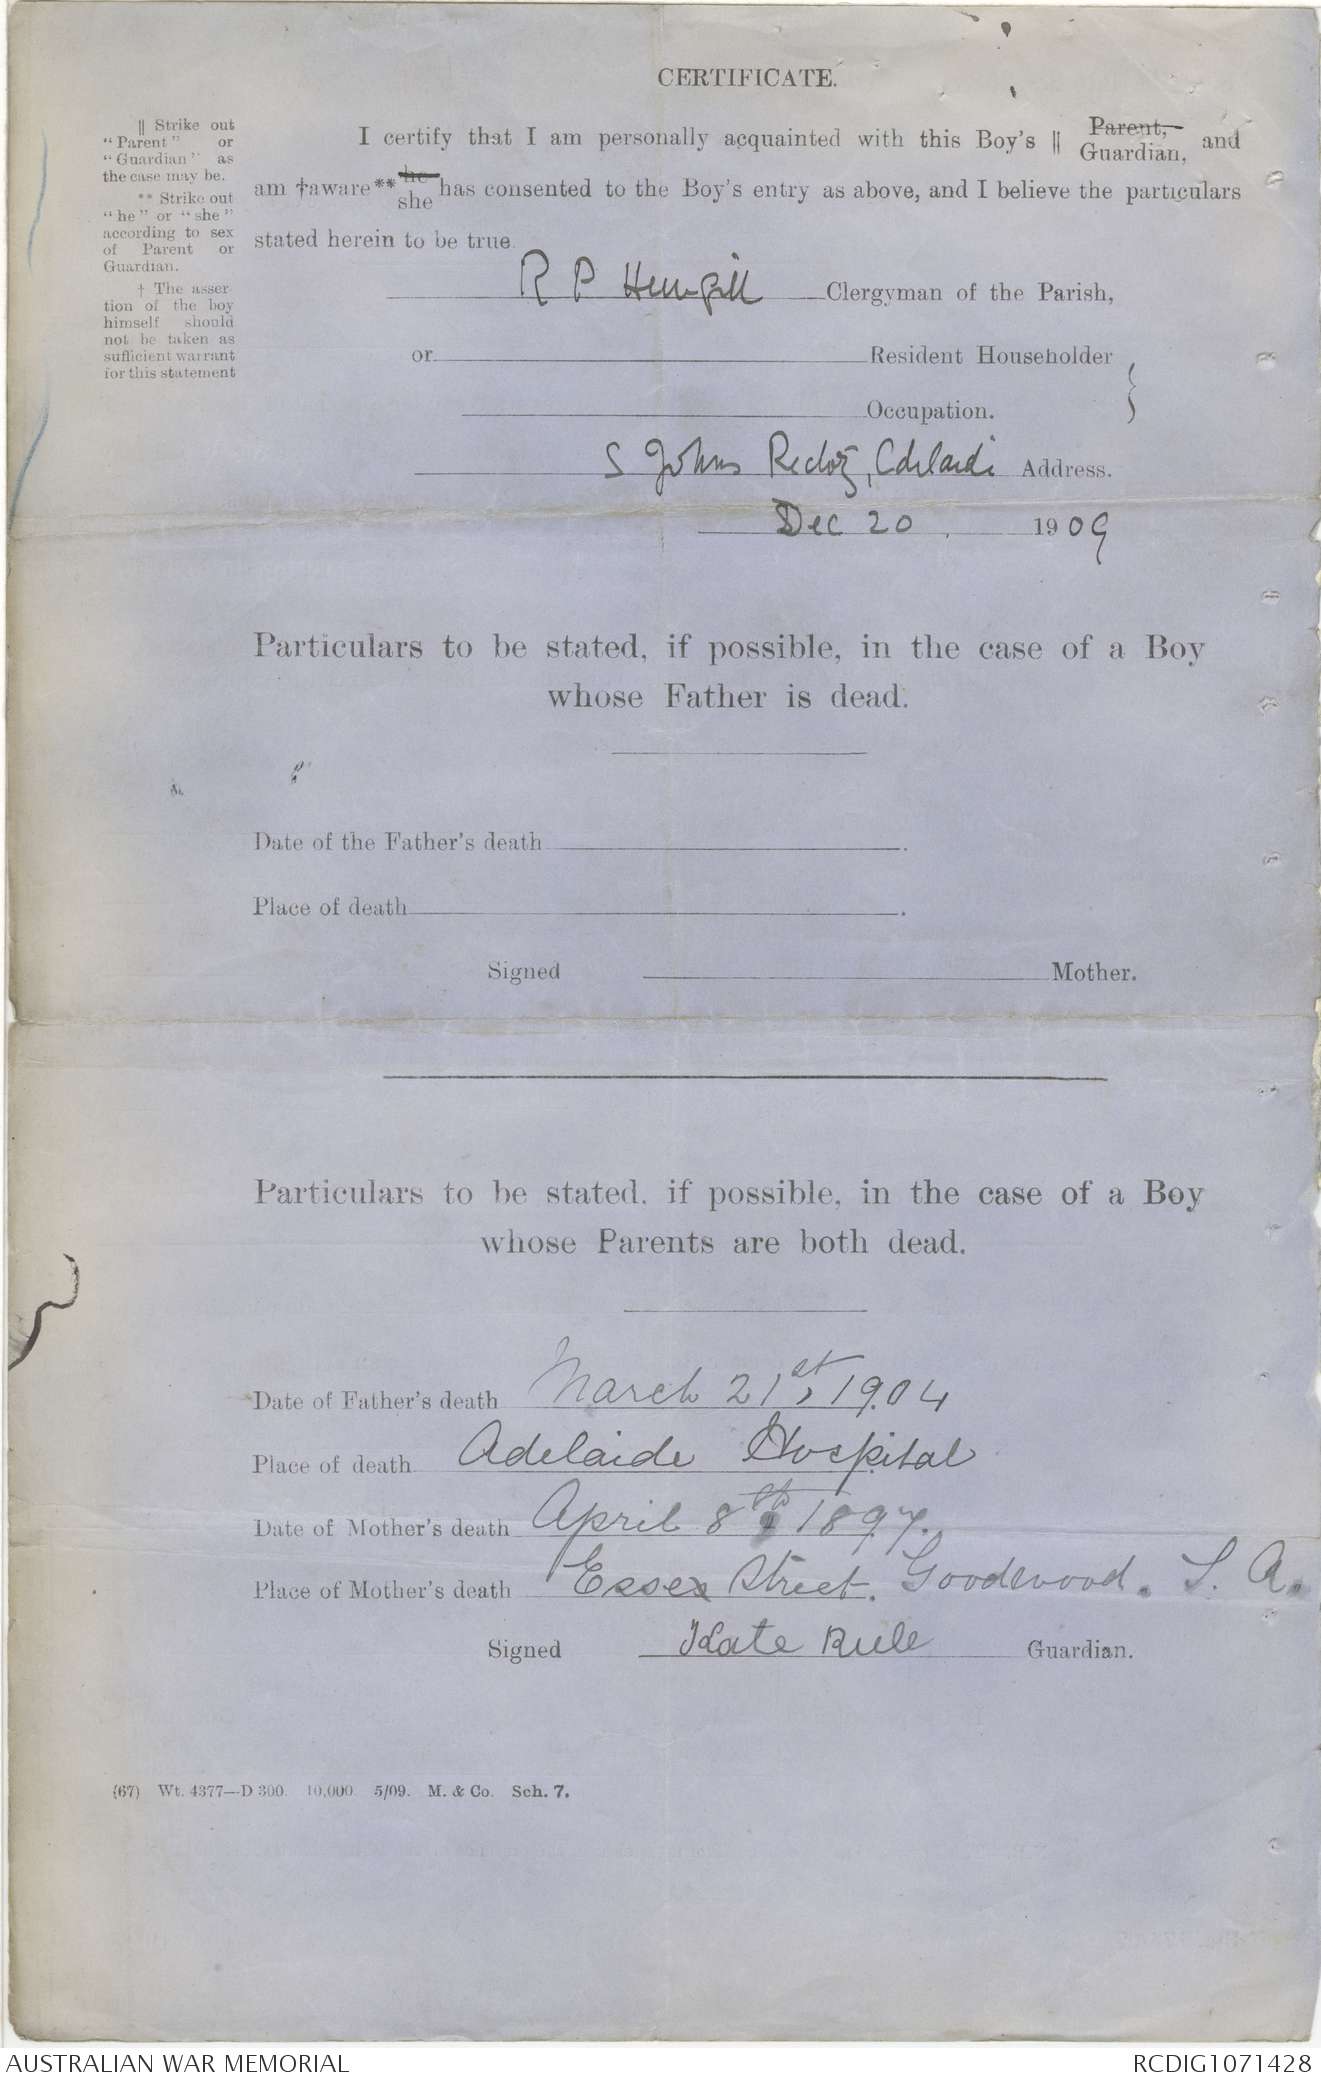 CERTIFICATE.
|| Strike out
"Parent" or
"Guardian" as
the case may be.
** Strike out
"he" or "she"
according to sex
of Parent or
Guardian.
† The asser
tion of the boy
himself should
not be taken as
sufficient warrant
for this statement
I certify that I am personally acquainted with this Boy's || Parent, Guardian, and
am †aware** he she has consented to the Boy's entry as above, and I believe the particulars
stated herein to be true.
R P Clergyman of the Parish,
or Resident Householder
Occupation.
S Johns Rectory, Adelaide Address.
Dec 20 1909
Particulars to be stated, if possible, in the case of a Boy
whose Father is dead.
Date of the Father's death .
Place of death .
Signed Mother.
Particulars to be stated, if possible, in the case of a Boy
whose Parents are both dead.
Date of Father's death March 21st, 1904
Place of death Adelaide Hospital
Date of Mother's death April 8th 1897.
Place of Mother's death Essex Street. Goodwood. S. A.
Signed Kate Rule Guardian.
(67) Wt. 4377—D 300. 10,000. 5/09. M. & Co. Sch. 7.
AUSTRALIAN WAR MEMORIAL
RCDIG1071428